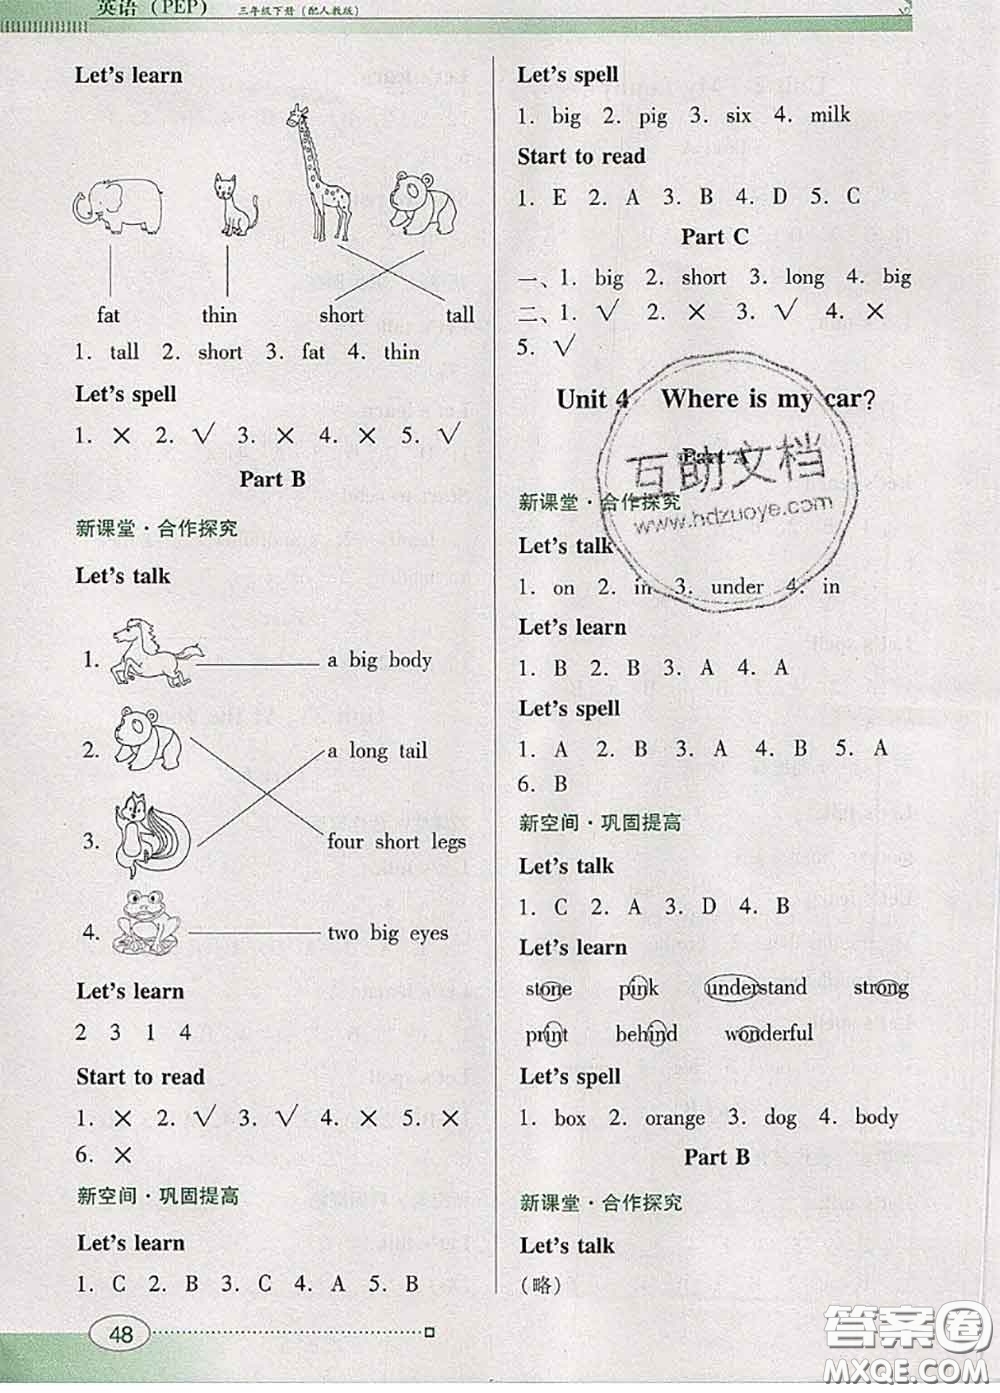 英语（PEP） 三年级下册（配人教版）
Let's learn
fat thin short tall
1. tall 2. short 3. fat 4. thin
Let's spell
1. × 2. √ 3. × 4. × 5. √
Part B
新课堂·合作探究
Let's talk
1. a big body
2. a long tail
3. four short legs
4. two big eyes
Let's learn
2 3 1 4
Start to read
1. × 2. √ 3. √ 4. × 5. ×
6. ×
新空间·巩固提高
Let's learn
1. C 2. B 3. C 4. A 5. B
48
Let's spell
1. big 2. pig 3. six 4. milk
Start to read
1. E 2. A 3. B 4. D 5. C
Part C
一、1. big 2. short 3. long 4. big
二、1. √ 2. × 3. √ 4. ×
5. √
Unit 4 Where is my car?
Part A
新课堂·合作探究
Let's talk
1. on 2. in 3. under 4. in
Let's learn
1. B 2. B 3. A 4. A
Let's spell
1. A 2. B 3. A 4. B 5. A
6. B
新空间·巩固提高
Let's talk
1. C 2. A 3. D 4. B
Let's learn
stone pink understand strong
print behind wonderful
Let's spell
1. box 2. orange 3. dog 4. body
Part B
新课堂·合作探究
Let's talk
（略）
互助文档
www.hdzuoye.com
答案圈
MXQE.COM